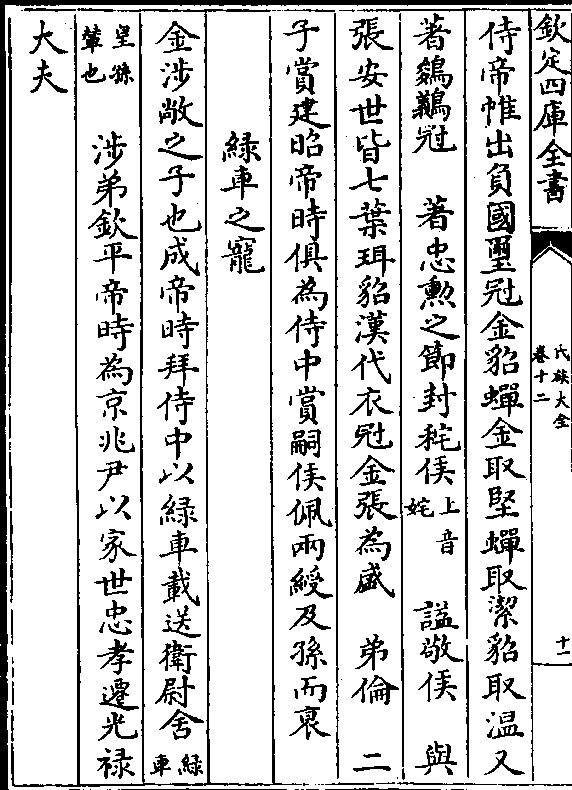 欽定四庫全書
氏族大全
卷十二
十一
侍帝帷出負國璽冠金貂蟬金取堅蟬取潔貂取温又
著鷄鶒冠　著忠勲之節封秺侯上音姹　諡敬侯　與
張安世皆七葉珥貂漢代衣冠金張為盛　弟倫　二
子賞建昭帝時俱為侍中賞嗣侯佩兩綬及孫而衰
緑車之寵
金涉敞之子也成帝時拜侍中以緑車載送衛尉舍緑車
皇孫輦也　涉弟欽平帝時為京兆尹以家世忠孝遷光禄
大夫